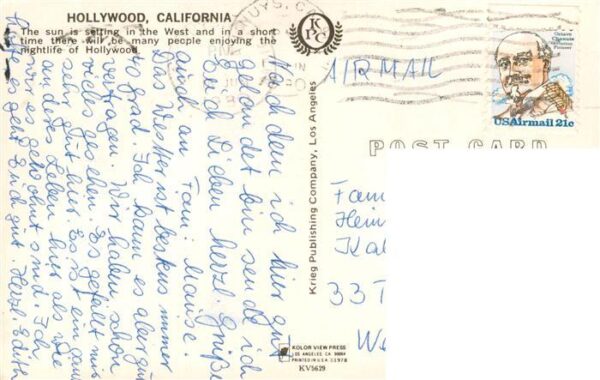 HOLLYWOOD, CALIFORNIA
The sun is setting in the West and in a short
time there will be many people enjoying the
nightlife of Hollywood.
Nach dem ich hier gut
gelandet bin sende ich
Euch Lieben herzl. Grüße
auch an Fam. Mauise.
Das Wetter ist bestens nur
40 grad. Ich kann es aber gut
vertragen. Wir haben schon
vieles gesehen. Es gefällt mir
sehr gut hier. Es ist ein ganz
anderes Leben hier als wie
wir es gewohnt sind. Ich
es geht Euch gut. Herzl. Edith
Krieg Publishing Company, Los Angeles
KPC
KOLOR VIEW PRESS
LOS ANGELES, CA.
PRINTED IN U.S.A.
KV5629
NUYS, C
AIRMAIL
Octave
Chanute
Aviation
Pioneer
USAirmail 21c
POST CARD
Fam
Hein
Kal
33T
We